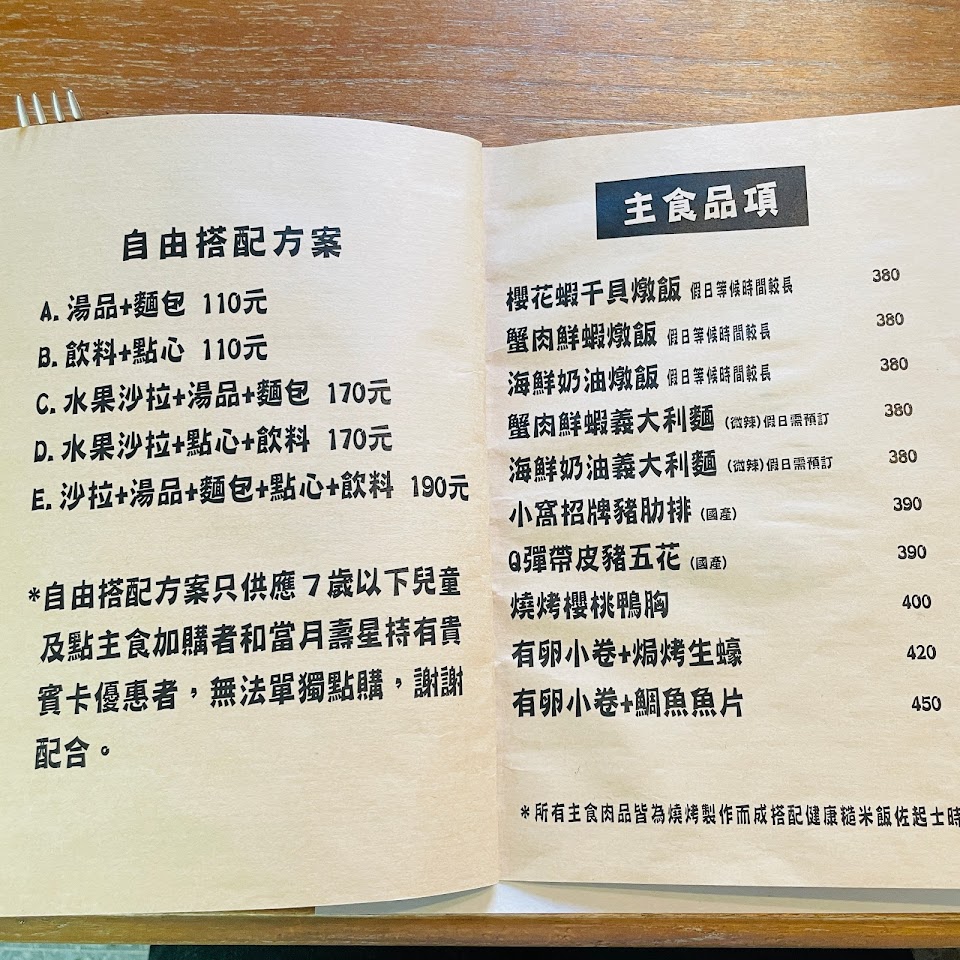 自由搭配方案
A. 湯品+麵包 110元
B. 飲料+點心 110元
C. 水果沙拉+湯品+麵包 170元
D. 水果沙拉+點心+飲料 170元
E. 沙拉+湯品+麵包+點心+飲料 190元
*自由搭配方案只供應7歲以下兒童
及點主食加購者和當月壽星持有貴
賓卡優惠者，無法單獨點購，謝謝
配合。
主食品項
櫻花蝦干貝燉飯 假日等候時間較長 380
蟹肉鮮蝦燉飯 假日等候時間較長 380
海鮮奶油燉飯 假日等候時間較長 380
蟹肉鮮蝦義大利麵 (微辣)假日需預訂 380
海鮮奶油義大利麵 (微辣)假日需預訂 380
小窩招牌豬肋排 (國產) 390
Q彈帶皮豬五花 (國產) 390
燒烤櫻桃鴨胸 400
有卵小卷+焗烤生蠔 420
有卵小卷+鯛魚魚片 450
*所有主食肉品皆為燒烤製作而成搭配健康糙米飯佐起士時